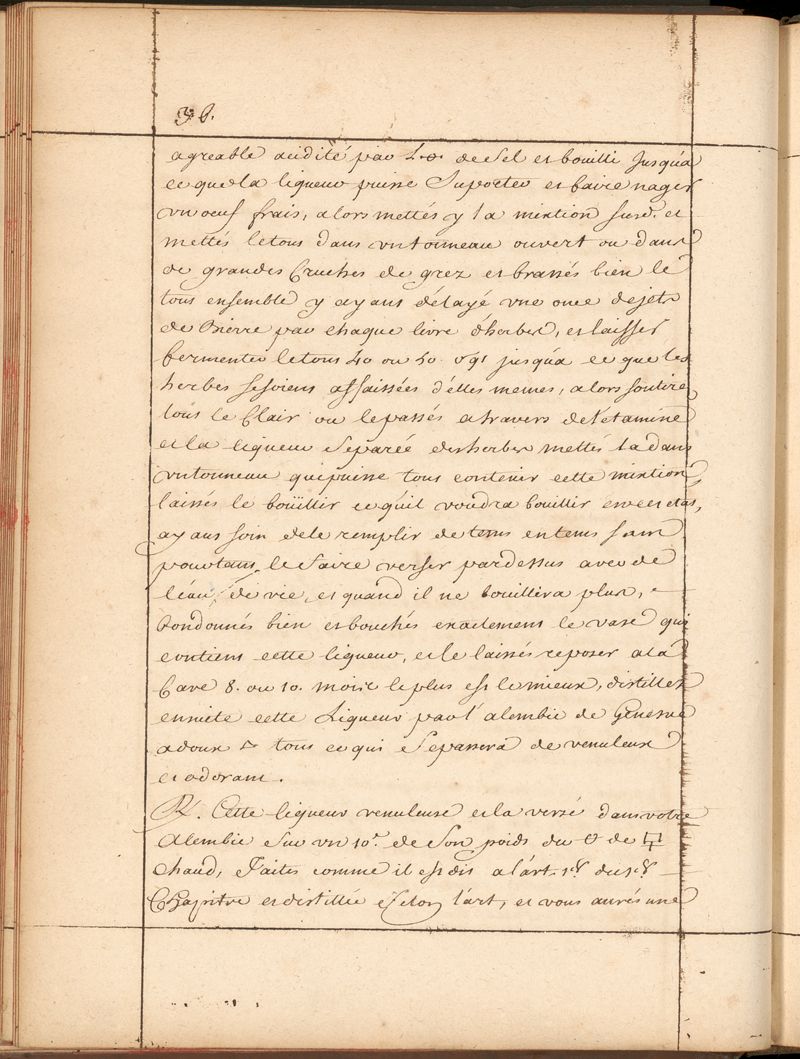 36.
agreable acidité par de Sel et bouilli Jusqúa
ce que la liqueur puisse Suporter et faire nager
vn oeuf frais, alors mettés y la mixtion susd. et
mettés letous dans vn tonneau ouvert ou dans
de grandes Cruches de grez et brassés bien le
tous ensemble y ayans délayé vne once dejets
de Bierre par chaque livre d'herbes, et laisser
fermenter letous 40 ou 50 jusqúa ce que les
herbes sesoiens affaissées d'elles memes, alors soutiré
tous le Clair ou lepassés atravers deletamine
et la liqueur Separée desherbes mettés la dans
vn tonneau quipuisse tous contenir cette mixtion,
laissés le boüillir cequil voudra bouillir encet etat,
ayans soin dele remplir de tems entems sans
pourtans, le faire verser pardessus avec de
leau de vie, et quand il ne bouillira plus,
bondonnés bien et bouchés exactement le vase qui
contiens cette liqueur, et le laissés reposer ala
Cave 8. ou 10. mois le plus est le mieux, distillés
ensuite cette Liqueur par l'alembic de
adoux tous ce qui Sepassera de venuleux
et odorant.
R. Cette liqueur venuleuse et la versé dans votre
Alembic Sur vn 10.e de Son poids du de
Chaud, faites comme il est dis a l'art. 1.er du 1.er
Chapitre et distillée Selon l'art, et vous aurés une